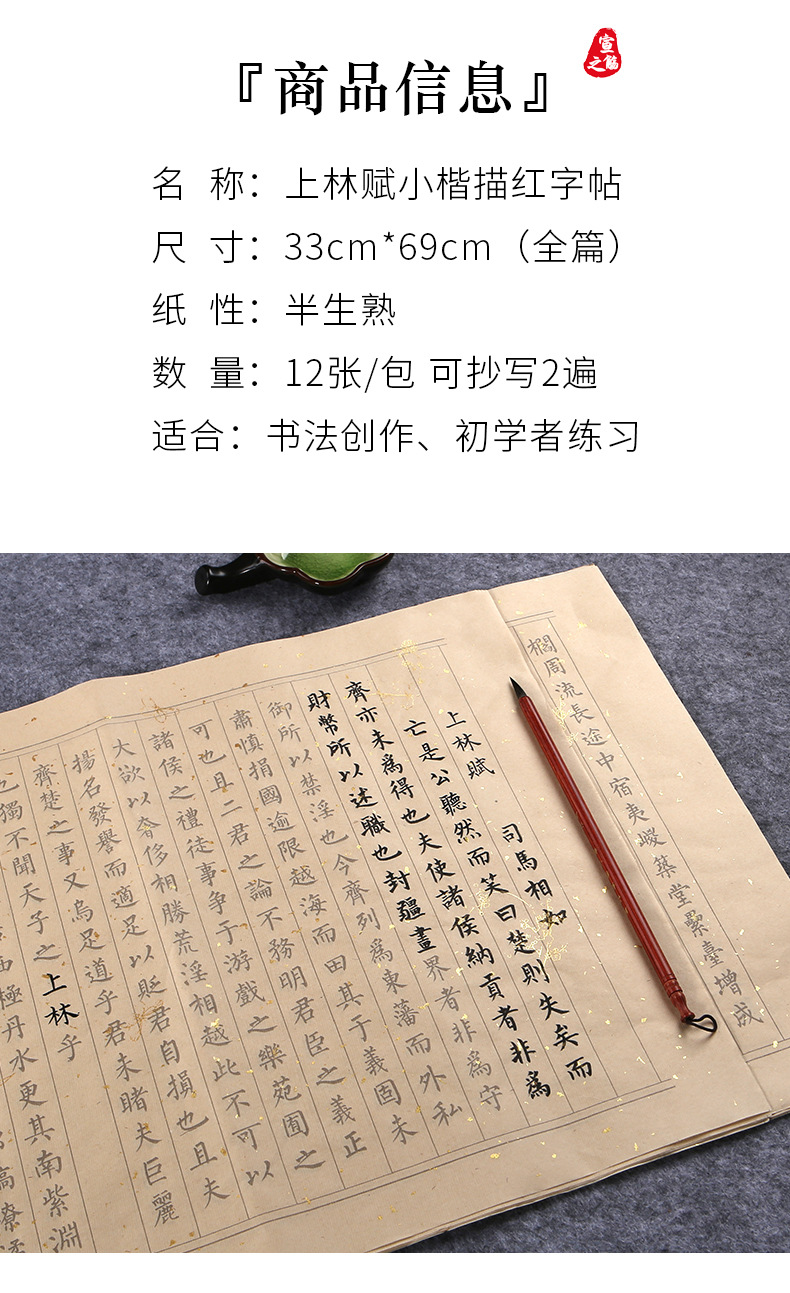 『商品信息』
宣之韵
名 称：上林赋小楷描红字帖
尺 寸：33cm*69cm（全篇）
纸 性：半生熟
数 量：12张/包 可抄写2遍
适合：书法创作、初学者练习
櫩周流長途中宿夷嵕築堂累臺增成
上林賦
司馬相如
亡是公聽然而笑曰楚則失矣而
齊亦未為得也夫使諸侯納貢者非為
財幣所以述職也封疆畫界者非為守
御所以禁淫也今齊列為東藩而外私
肅慎捐國逾限越海而田其于義固未
可也且二君之論不務明君臣之義正
諸侯之禮徒事爭于游戲之樂苑囿之
大欲以奢侈相勝荒淫相越此不可以
揚名發譽而適足以貶君自損也且夫
齊楚之事又烏足道乎君未睹夫巨麗
也獨不聞天子之上林乎
西極丹水更其南紫淵